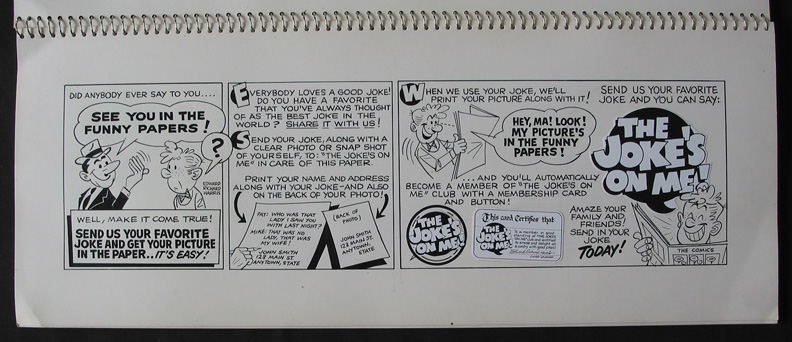 DID ANYBODY EVER SAY TO YOU....
SEE YOU IN THE
FUNNY PAPERS!
?
EDWARD
RICHARD
HARRIS
WELL, MAKE IT COME TRUE!
SEND US YOUR FAVORITE
JOKE AND GET YOUR PICTURE
IN THE PAPER..IT'S EASY!
EVERYBODY LOVES A GOOD JOKE!
DO YOU HAVE A FAVORITE
THAT YOU'VE ALWAYS THOUGHT
OF AS THE BEST JOKE IN THE
WORLD? SHARE IT WITH US!
SEND YOUR JOKE, ALONG WITH A
CLEAR PHOTO OR SNAP SHOT
OF YOURSELF, TO: "THE JOKE'S ON
ME" IN CARE OF THIS PAPER.
PRINT YOUR NAME AND ADDRESS
ALONG WITH YOUR JOKE-AND ALSO
ON THE BACK OF YOUR PHOTO!
PAT: WHO WAS THAT
LADY I SAW YOU
WITH LAST NIGHT?
MIKE: THAT WAS NO
LADY, THAT WAS
MY WIFE!
JOHN SMITH
123 MAIN ST.
ANYTOWN, STATE
(BACK OF
PHOTO)
JOHN SMITH
123 MAIN ST.
ANYTOWN,
STATE
WHEN WE USE YOUR JOKE, WE'LL
PRINT YOUR PICTURE ALONG WITH IT!
HEY, MA! LOOK!
MY PICTURE'S
IN THE FUNNY
PAPERS!
...AND YOU'LL AUTOMATICALLY
BECOME A MEMBER OF "THE JOKE'S ON
ME" CLUB WITH A MEMBERSHIP CARD
AND BUTTON!
THE
JOKE'S
ON ME!
This card Certifies that
THE
JOKE'S
ON ME!
SEND US YOUR FAVORITE
JOKE AND YOU CAN SAY:
THE
JOKE'S
ON ME!
AMAZE YOUR
FAMILY AND
FRIENDS!
SEND IN YOUR
JOKE
TODAY!
THE COMICS